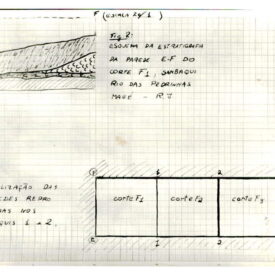 F (ESCALA 2g/1)
Fig 2:
ESQUEMA DA ESTRATIGRAFIA
DA PAREDE E-F DO
CORTE F1, SAMBAQUI
RIO DAS PEDRINHAS
MAGÉ - R.J
LIZAÇÃO DAS
DES REPRO
DAS NOS
QUIS 1 e 2.
F
1
2
corte F1
corte F2
corte F3
E
1
2